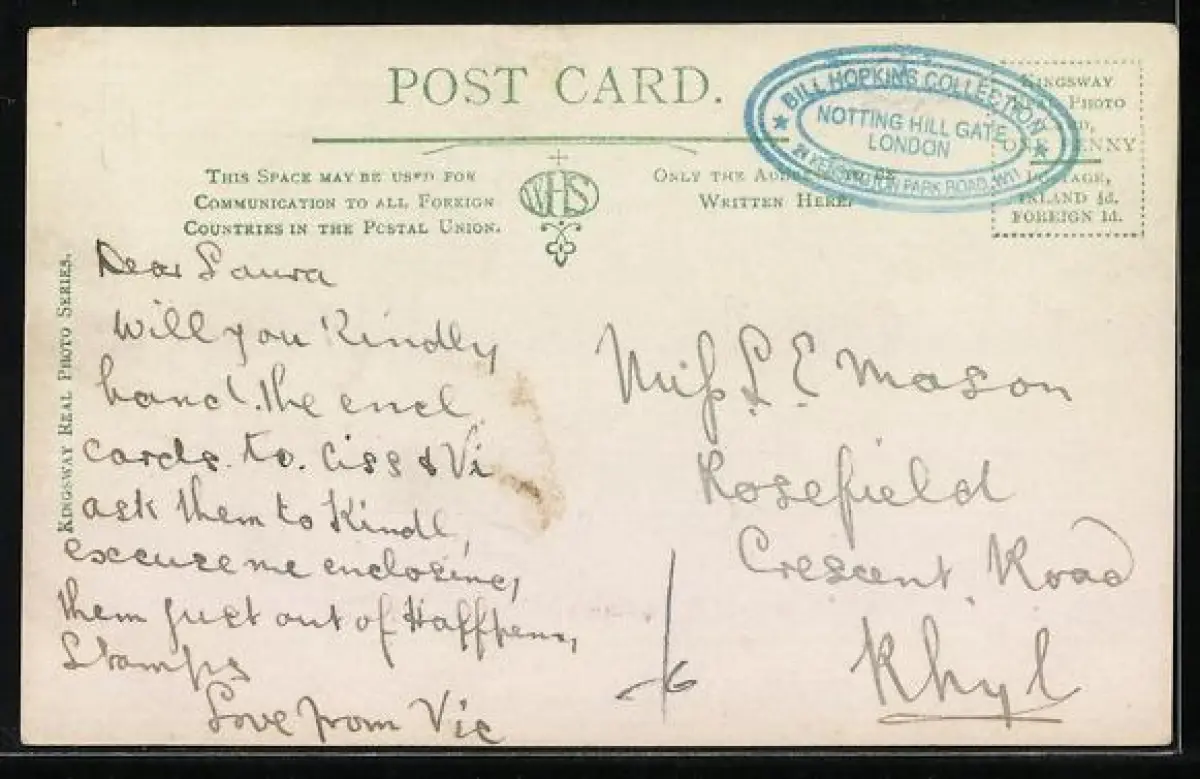 POST CARD.
THIS SPACE MAY BE USED FOR
COMMUNICATION TO ALL FOREIGN
COUNTRIES IN THE POSTAL UNION.
WHS
ONLY THE ADDRESS TO BE
WRITTEN HERE.
BILL HOPKINS COLLECTION
NOTTING HILL GATE
LONDON
KENSINGTON PARK ROAD, W11
KINGSWAY
REAL PHOTO
ONE PENNY
POSTAGE,
INLAND ½d.
FOREIGN 1d.
KINGSWAY REAL PHOTO SERIES.
Dear Laura
Will you Kindly
hand the encl
cards to. Ciss & Vi
ask them to Kindl,
excuse me enclosing
them just out of Haffpenny
Stamps
Love from Vic
Miss L E Mason
Rosefield
Crescent Road
Rhyl